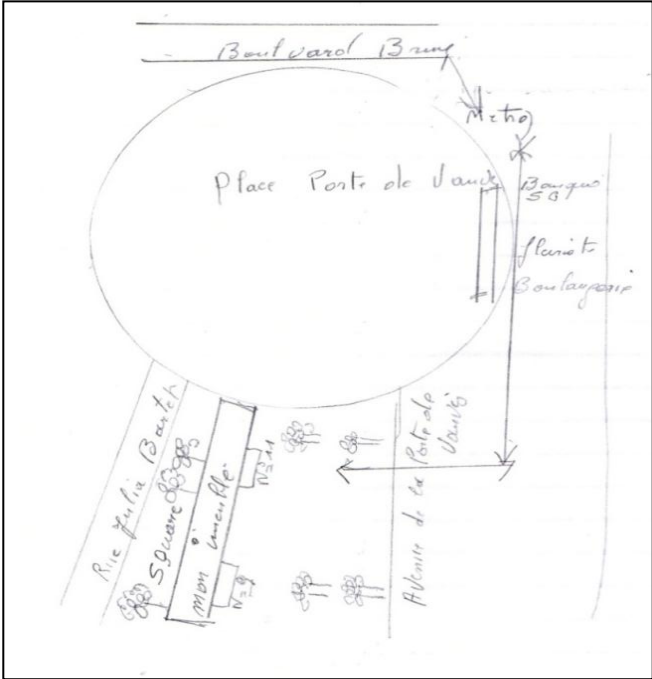 Boulvard Bruny
Métro
Place Porte de Vanves
Banque
SG
fleuriste
Boulangerie
Rue Julia Bartet
Square
mon imeuble
N=11
N=9
Avenue de la Porte de
Vanves